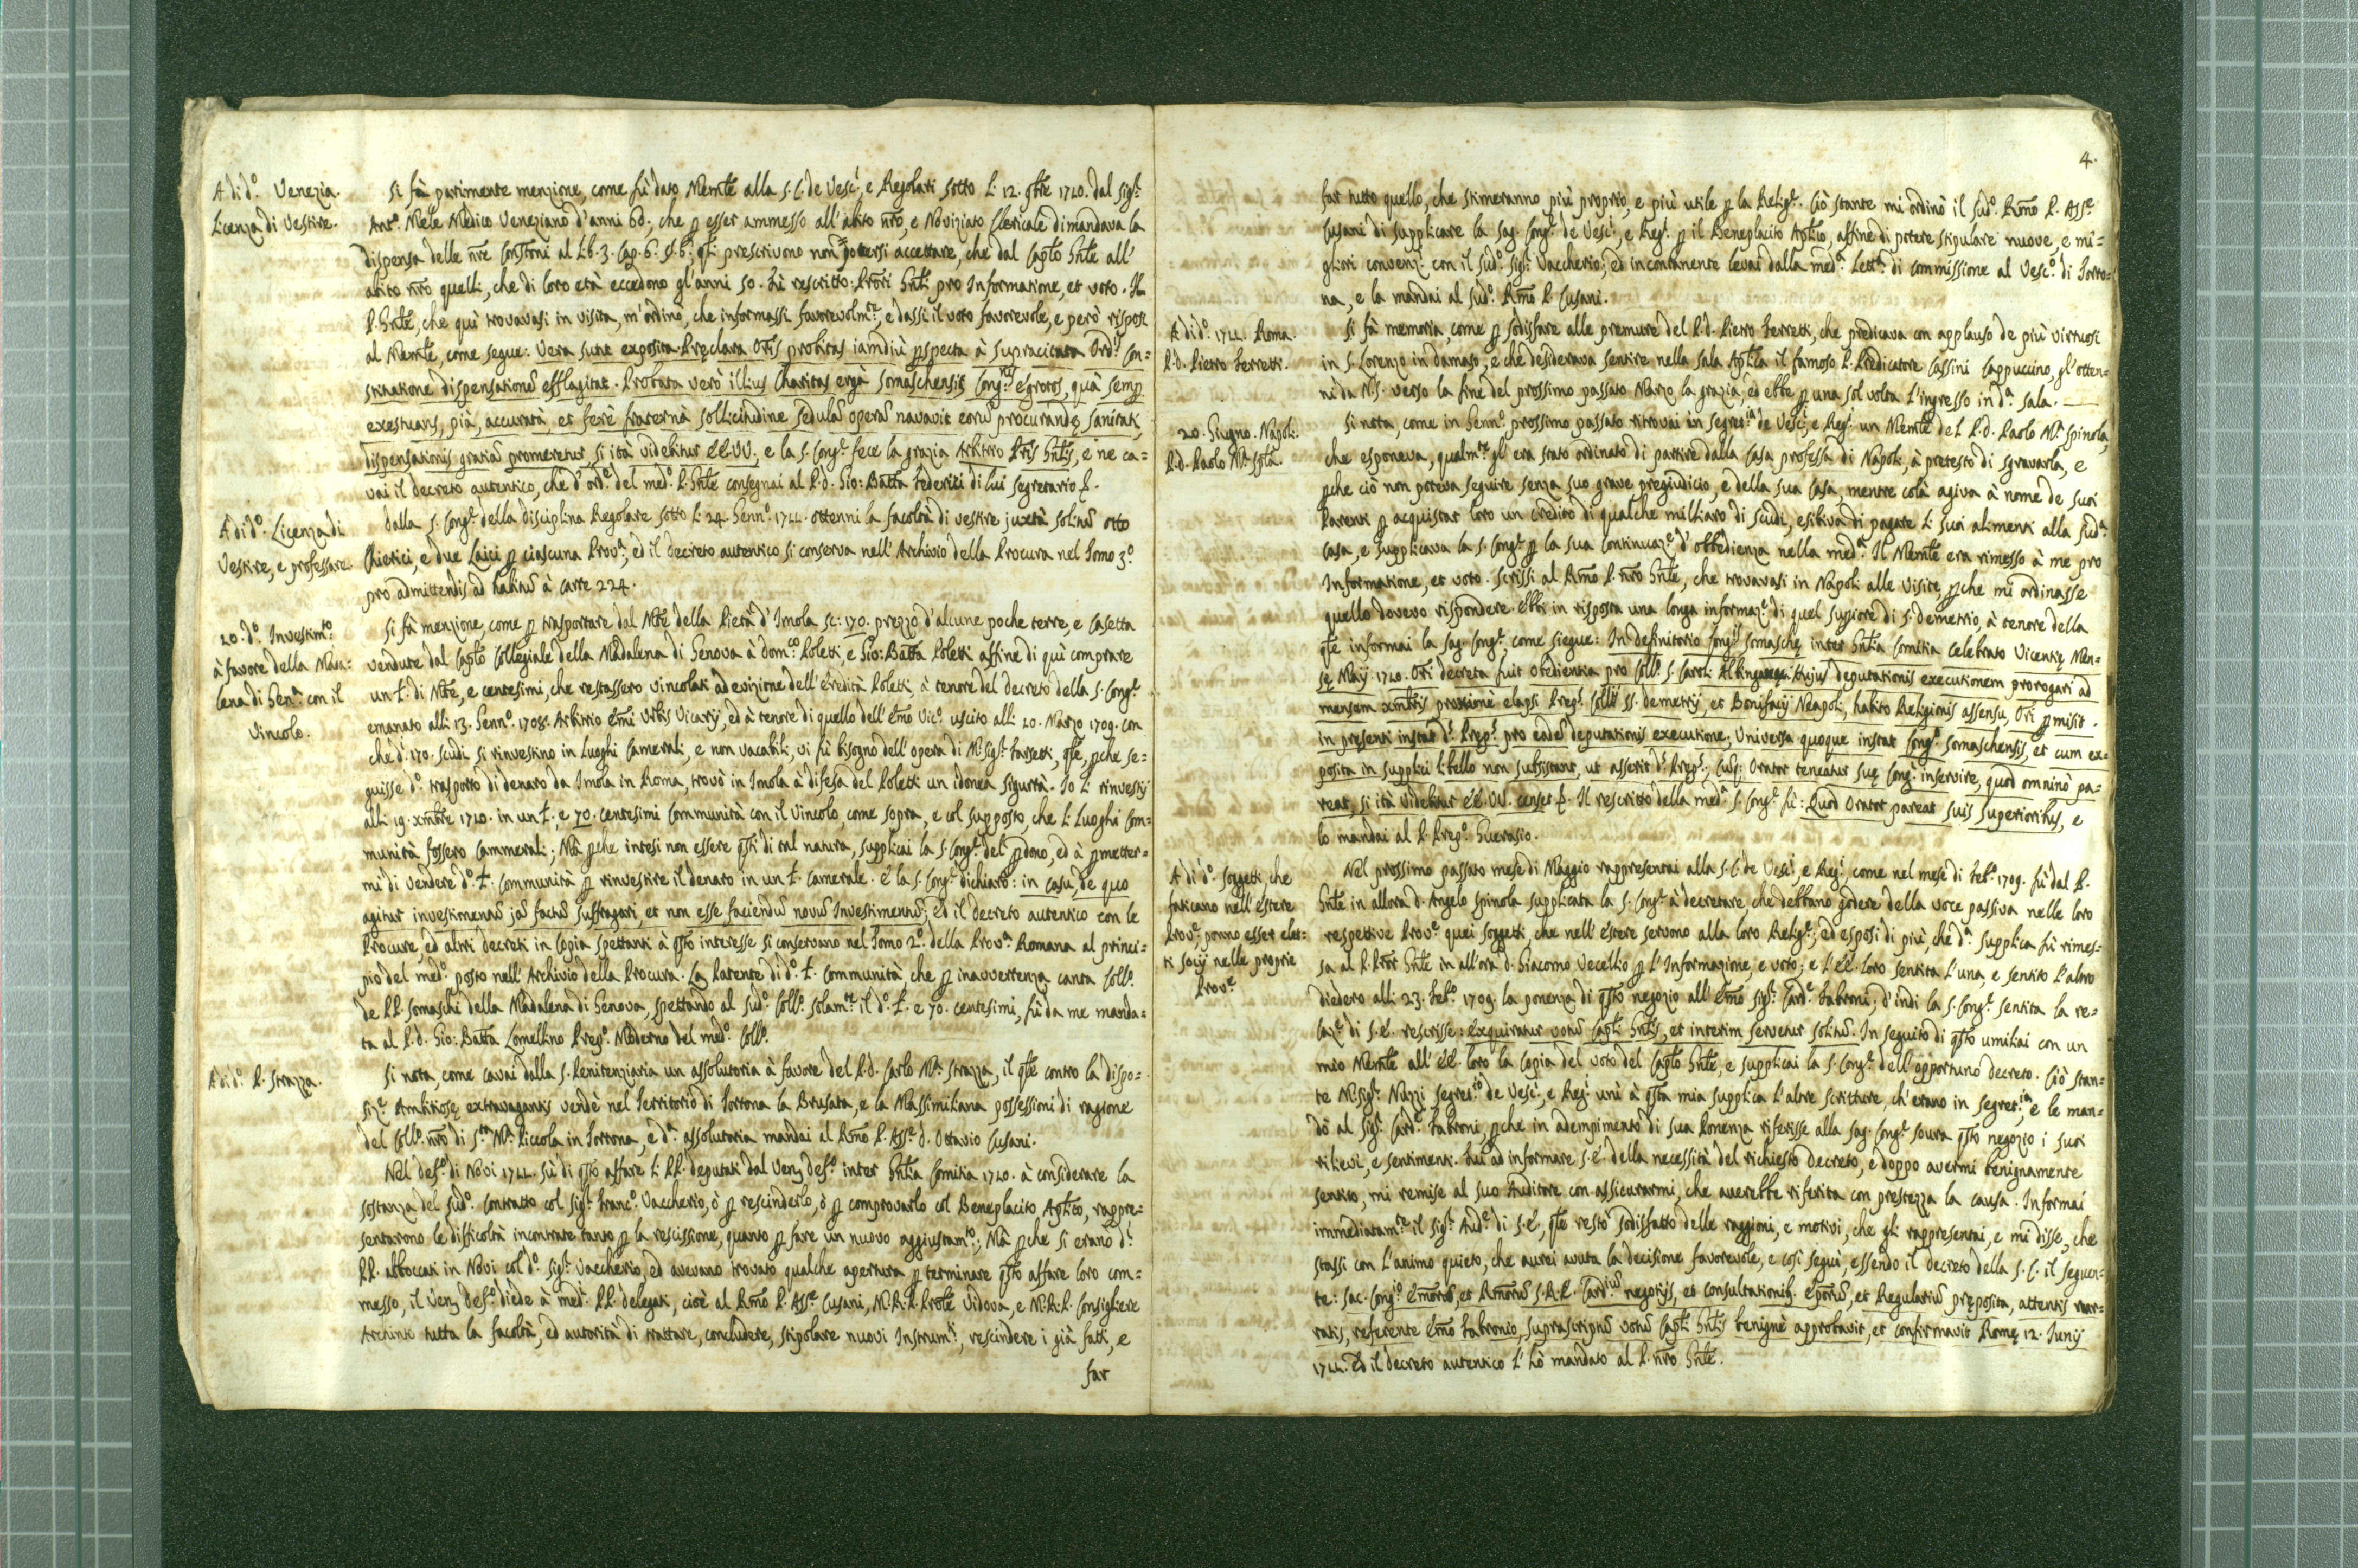 A dì d.º Venezia.
Licenza di Vestire.
Si fà parimente menzione, come fù dato Memle alla S. C. de Vescì, e Regolari sotto li 12. 9bre 1710. dal Sigr.
Antº. Mele Medico Veneziano d'anni 60; che p esser ammesso all'abito nrõ, e Noviziato Clericale dimandava la
dispensa delle nre Constõni al Lib. 3. Cap. 6. §. 6; qli prescrivono non potersi accettare, che dal Caplo Gnle all'
abito nrõ quelli, che di loro età eccedono gl'anni 50. Fù rescritto: Prori Gnli pro Informatione, et voto. Il
P. Gnle, che quì trovavasi in visita, m'ordinò, che informassi favorevolmte, e dassi il voto favorevole, e però risposi
al Memle, come segue: Vera sunt exposita. Pręclara Oris probitas iamdiù pspecta à supracitata Ordi. Con=
stitutione dispensationē efflagitat. Probata verò illius Charitas ergà Somaschensis Congnis ęgrotos, quâ semp
exestuans, piâ, accuratâ, et ferè fraternâ sollicitudine sedulā operā navavit eorū procurandę sanitati,
dispensationis gratiā promeretur, si ità videbitur EE. VV., e la S. Congr. fece la grazia Arbitrio Pris Gnlis, e ne ca=
vai il decreto autentico, che d'ordº. del medº. P. Gnle consegnai al P. D. Gio: Batta Federici di lui Segretario &.
A dì dº. Licenza di
Vestire, e professare.
Dalla S. Congr. della disciplina Regolare sotto li 24. Gennº. 1711. ottenni la facoltà di vestire juxtà solitū otto
Chierici, e due Laici p ciascuna Prova; ed il decreto autentico si conserva nell'Archivio della Procura nel Tomo 3º.
pro admittendis ad habitū à carte 224.
20. dº. Investimto
à favore della Mada=
lena di Gena. con il
vincolo.
Si fà menzione, come p trasportare dal Mte della Pietà d'Imola sc: 170. prezzo d'alcune poche terre, e casetta
vendute dal Caplo Collegiale della Madalena di Genova à Domco Poletti, e Gio: Batta Poletti affine di quì comprare
un L. di Mte, e centesimi, che restassero vincolati ad evizione dell'eredità Poletti, à tenore del decreto della S. Congr.
emanato alli 13. Gennº. 1708. Arbitrio Emi Urbis Vicarij, ed à tenore di quello dell'Emo Vicº. uscito alli 20. Marzo 1709. con
che dì. 170. scudi si rinvestino in Luoghi Camerali, e non vacabili, vi fù bisogno dell'opera di Mr. Sigr. Farsetti, qle, pche se=
guisse dº. trasporto di denaro da Imola in Roma, trovò in Imola à difesa del Poletti un idonea sigurtà. Io li rinvestij
alli 19. xmbre 1710. in un L. e 70. centesimi Communità con il Vincolo, come sopra, e col supposto, che li Luoghi Com=
munità fossero Cammerali; Mà pche intesi non essere qsti di tal natura, supplicai la S. Congr. del pdono, ed à pmetter=
mi di vendere dº. L. Communità p rinvestire il denaro in un L. Camerale. E la S. Congr. dichiarò: in casu, de quo
agitur investimentū jā factū suffragari, et non esse faciendū novū Investimentū; ed il decreto autentico con le
Procure, ed altri decreti in copia spettanti à qsto interesse si conservano nel Tomo 2º. della Prova. Romana al princi=
pio del medº. posto nell'Archivio della Procura. La Patente di dº. L. Communità, che p inavvertenza canta Collº.
de PP. Somaschi della Madalena di Genova, spettando al sudº. Collº. solamte il dº. L. e 70. centesimi, fù da me manda=
ta al P. D. Gio: Batta Lomellino Prepº. Moderno del medº. Collº.
A dì dº. P. Strazza.
Si nota, come cavai dalla S. Penitenziaria un assolutoria à favore del P. D. Carlo Ma. Strazza, il qle contro la dispo=
size. Ambitiosę extravagantis vendè nel Territorio di Tortona la Brusata, e la Massimiliana possessioni di ragione
del Collº. nrõ di Sta. Ma. Piccola in Tortona, e da. assolutoria mandai al Rmo P. Asse. D. Ottavio Cusani.
Nel Defº. di Novi 1711. sù di qsto affare li PP. deputati dal Ven. Defº. inter Gnlia Comitia 1710. à considerare la
sostanza del sudº. Contratto col Sigr. Francº. Vaccherio, ò p rescinderlo, ò p comprovarlo col Beneplacito Aplico, rappre=
sentarono le difficoltà incontrate tanto p la rescissione, quanto p fare un nuovo aggiustamto; Mà pche si erano di.
PP. abboccati in Novi col dº. Sigr. Vaccherio, ed avevano trovato qualche apertura p terminare qsto affare loro com=
messo, il Ven. Defº. diede à medi. PP. delegati, cioè al Rmo P. Asse. Cusani, M. R. P. Prole Vidova, e M. R. P. Consigliere
Archinto tutta la facoltà, ed autorità di trattare, concludere, stipolare nuovi Instrumti, rescindere i già fatti, e
far
4.
far tutto quello, che stimeranno più proprio, e più utile p la Religr. Ciò stante mi ordinò il sudº. Rmo P. Asse.
Cusani di supplicare la Sag. Congr. de Vescì, e Regi. p il Beneplacito Aplico, affine di potere stipulare nuove, e mi=
gliori convenzi. con il sudº. Sigr. Vaccherio; ed incontanente levai dalla meda. Letta. di commissione al Vescº. di Torto=
na, e la mandai al sudº. Rmo P. Cusani.
A dì dº. 1711. Roma.
P. D. Pietro Ferretti.
Si fà memoria, come p sodisfare alle premure del P. D. Pietro Ferretti, che predicava con applauso de più virtuosi
in S. Lorenzo in Damaso, e che desiderava sentire nella sala Aplica il famoso P. Predicatore Cassini Cappuccino, gl'otten=
ni da N. S. verso la fine del prossimo passato Marzo la grazia, ed ebbe p una sol volta l'ingresso in da. sala.
20. Giugno. Napoli.
P. D. Paolo Ma. Spla.
Si nota, come in Gennº. prossimo passato ritrovai in Segretia de Vescì, e Regi. un Memle del P. D. Paolo Ma. Spinola,
che esponeva, qualmte gl'era stato ordinato di partire dalla Casa professa di Napoli, à pretesto di sgravarla, e
pche ciò non poteva seguire senza suo grave pregiudicio, e della sua Casa, mentre colà agiva à nome de suoi
Parenti p acquistar loro un credito di qualche milliaro di scudi, esibiva di pagare li suoi alimenti alla suda.
Casa, e supplicava la S. Congr. p la sua continuaze d'obbedienza nella meda. Il Memle era rimesso à me pro
Informatione, et voto. Scrissi al Rmo P. nrõ Gnle, che trovavasi in Napoli alle Visite, pche mi ordinasse
quello dovevo rispondere. Ebbi in risposta una longa informaze di quel Supiore di S. Demetrio, à tenore della
qle informai la Sag. Congr. come siegue: In Definitorio Congis Somaschę inter Gnlia Comitia celebrato Vicentię Men=
sę Maij 1710. Ori decreta fuit obedientia pro Collº. S. Caroli Albingaunga. Hujus deputationis executionem prorogari ad
mensem xmbris proximè elapsi Prepi. Collij SS. Demetrij, et Bonifacij Neapoli, habito Religionis assensu, Ori pmisit.
in presenti instat ds. Prepi. pro eadē deputationis executione; Universa quoque instat Congo. Somaschensis, et cum ex=
posita in supplici libello non subsistant, ut asserit ds. Prepi., Orator teneatur suę Congi. inservire, quod omninò pa=
reat, si ità videbitur EE. VV. censet &. Il rescritto della meda. S. Congr. fù: Quod Orator pareat suis Superioribus, e
lo mandai al P. Prepº. Guerasio.
A dì dº. Soggetti, che
faticano nell'estere
Prove, ponno esser elet=
ti socij nelle proprie
Prove
Nel prossimo passato mese di Maggio rappresentai alla S. C. de Vescì, e Regi. come nel mese di Febº. 1709. fù dal P.
Gnle in allora D. Angelo Spinola supplicata la S. Congr. à decretare, che debbano godere della voce passiva nelle loro
respettive Prove quei soggetti, che nell'estere servono alla loro Religr; ed esposi di più, che da. supplica fù rimes=
sa al P. Pror Gnle in all'ora D. Giacomo Vecellio p l'Informazione, e voto; e l'EE. loro sentita l'una, e sentito l'altro
diedero alli 23. Febº. 1709. la ponenza di qsto negozio all'Emo Sigr. Carde Fabroni; d'indi la S. Congr. sentita la re=
laze di S. E. rescrisse: exquiratur votū Capli Gnlis, et interim servetur solitū. In seguito di qsto umiliai con un
mio Memle all'EE. loro la copia del voto del Caplo Gnle, e supplicai la S. Congr. dell'opportuno decreto. Ciò stan=
te Mr. Sigr. Nuzzi Segretrio de Vescì, e Regi. unì à qsta mia supplica l'altre scritture, ch'erano in Segretia, e le man=
dò al Sigr. Carde Fabroni, pche in adempimento di sua Ponenza riferisse alla Sag. Congr. soura qsto negozio i suoi
rilievi, e sentimenti. Fui ad informare S. E. della necessità del richiesto decreto, e doppo avermi benignamente
sentito, mi remise al suo Auditore con assicurarmi, che averebbe riferita con prestezza la causa. Informai
immediatamte il Sigr. Aude di S. E., qle restò sodisfatto delle raggioni, e motivi, che gli rappresentai, e mi disse, che
stassi con l'animo quieto, che aurei avuta la decisione favorevole, e così seguì, essendo il decreto della S. C. il seguen=
te: Sac. Congio Emorū, et Rmorū S. R. E. Cardiū negotijs, et consultationib. Eporū, et Regulariū pręposita, attentis nar=
ratis, referente Emo Fabronio, suprascriptū votū Capli Gnlis benignè approbavit, et confirmavit Romę 12. Junij
1711. Ed il decreto autentico l'hò mandato al P. nrõ Gnle.